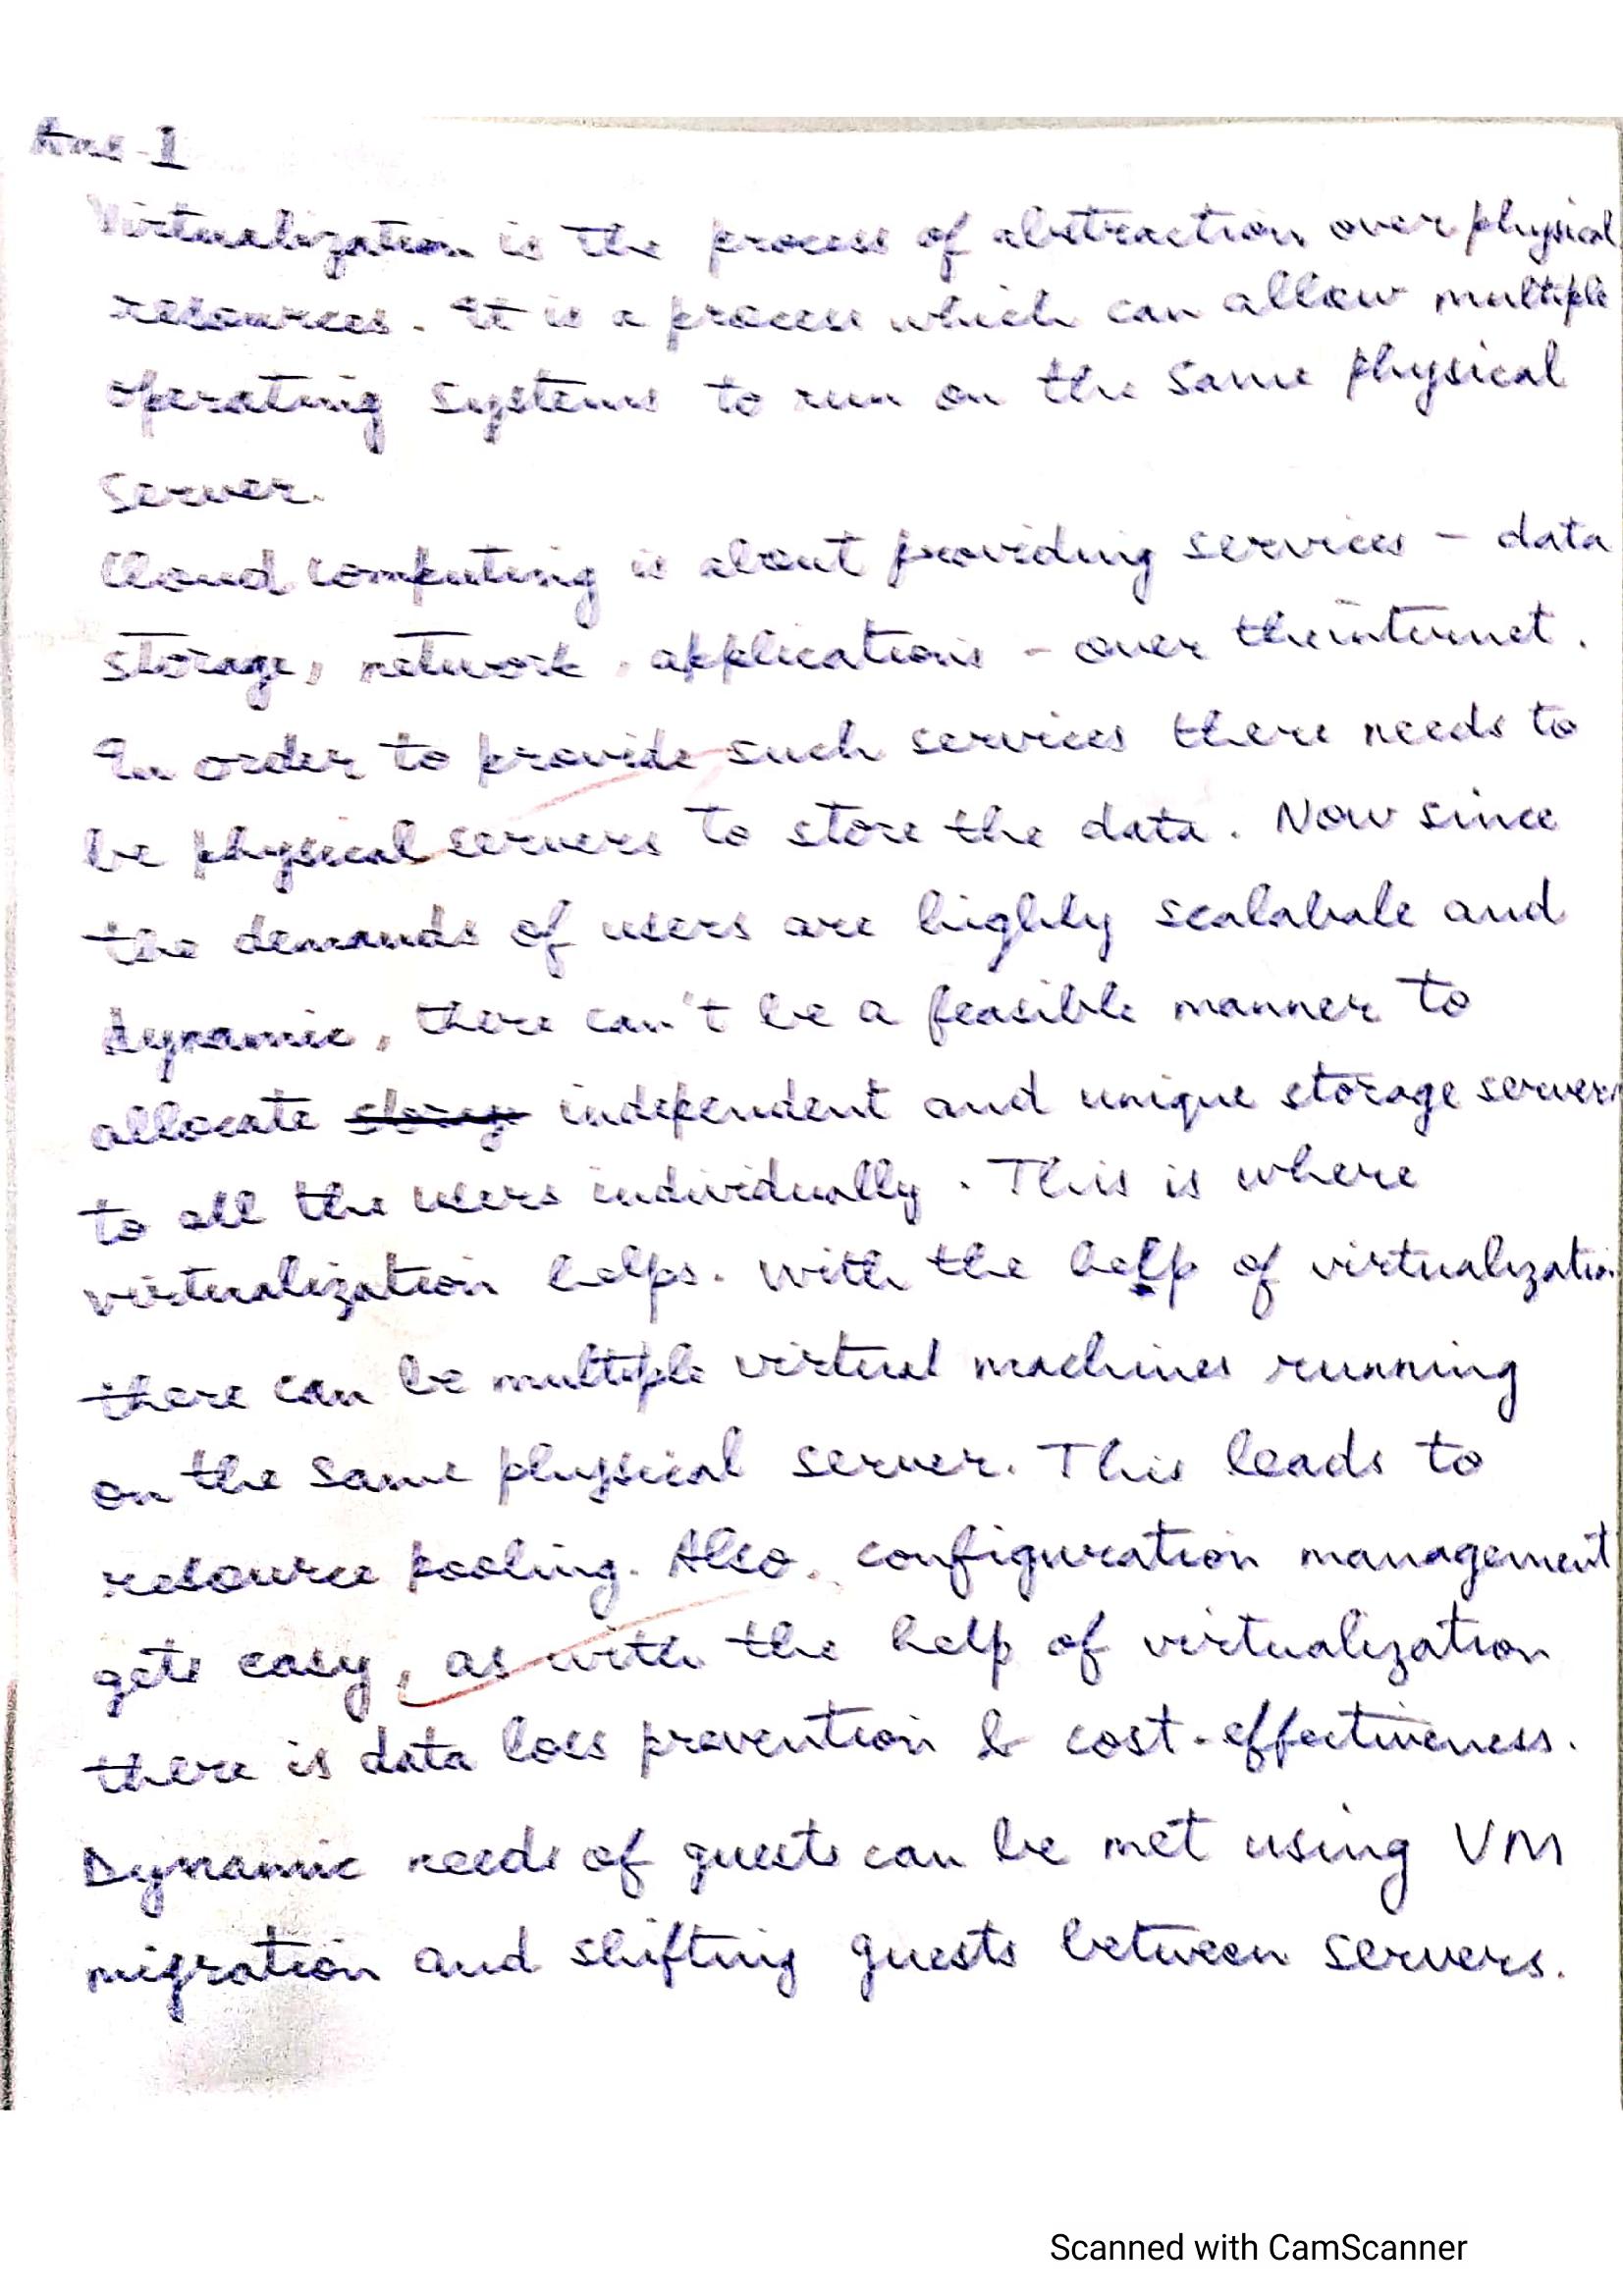 Ans-1
Virtualization is the process of abstraction over physical
resources. It is a process which can allow multiple
operating systems to run on the same physical
server.
Cloud computing is about providing services - data
storage, network, applications - over the internet.
In order to provide such services there needs to
be physical servers to store the data. Now since
the demands of users are highly scalabale and
dynamic, there can't be a feasible manner to
allocate independent and unique storage servers
to all the users individually. This is where
virtualization helps. With the help of virtualization
there can be multiple virtual machines running
on the same physical server. This leads to
resource pooling. Also, configuration management
gets easy, as with the help of virtualization
there is data loss prevention & cost-effectiveness.
Dynamic needs of guests can be met using VM
migration and shifting guests between servers.
Scanned with CamScanner